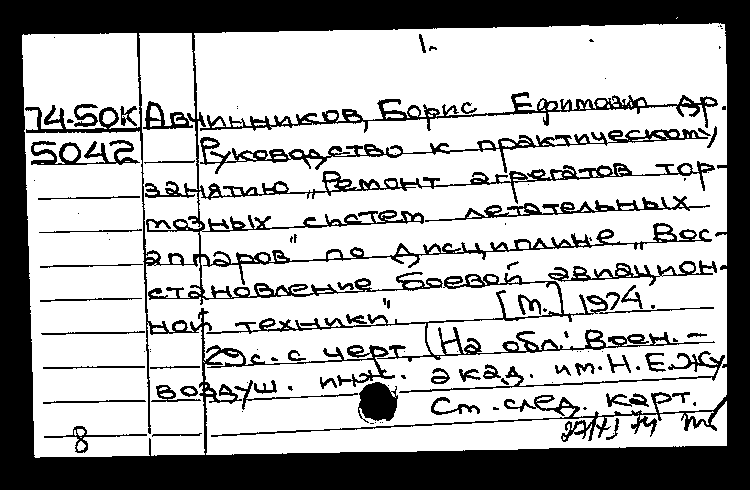 1.
74-50К Авчинников, Борис Ефимович др.
5042 Руководство к практическому
занятию „Ремонт агрегатов тор-
мозных систем летательных
аппаров" по дисциплине „Вос-
становление боевой авиацион-
ной техники". [М.], 1974.
29 с. с черт. (На обл.: Воен.-
воздуш. инж. акад. им. Н. Е. Жу.
См. след. карт.
8